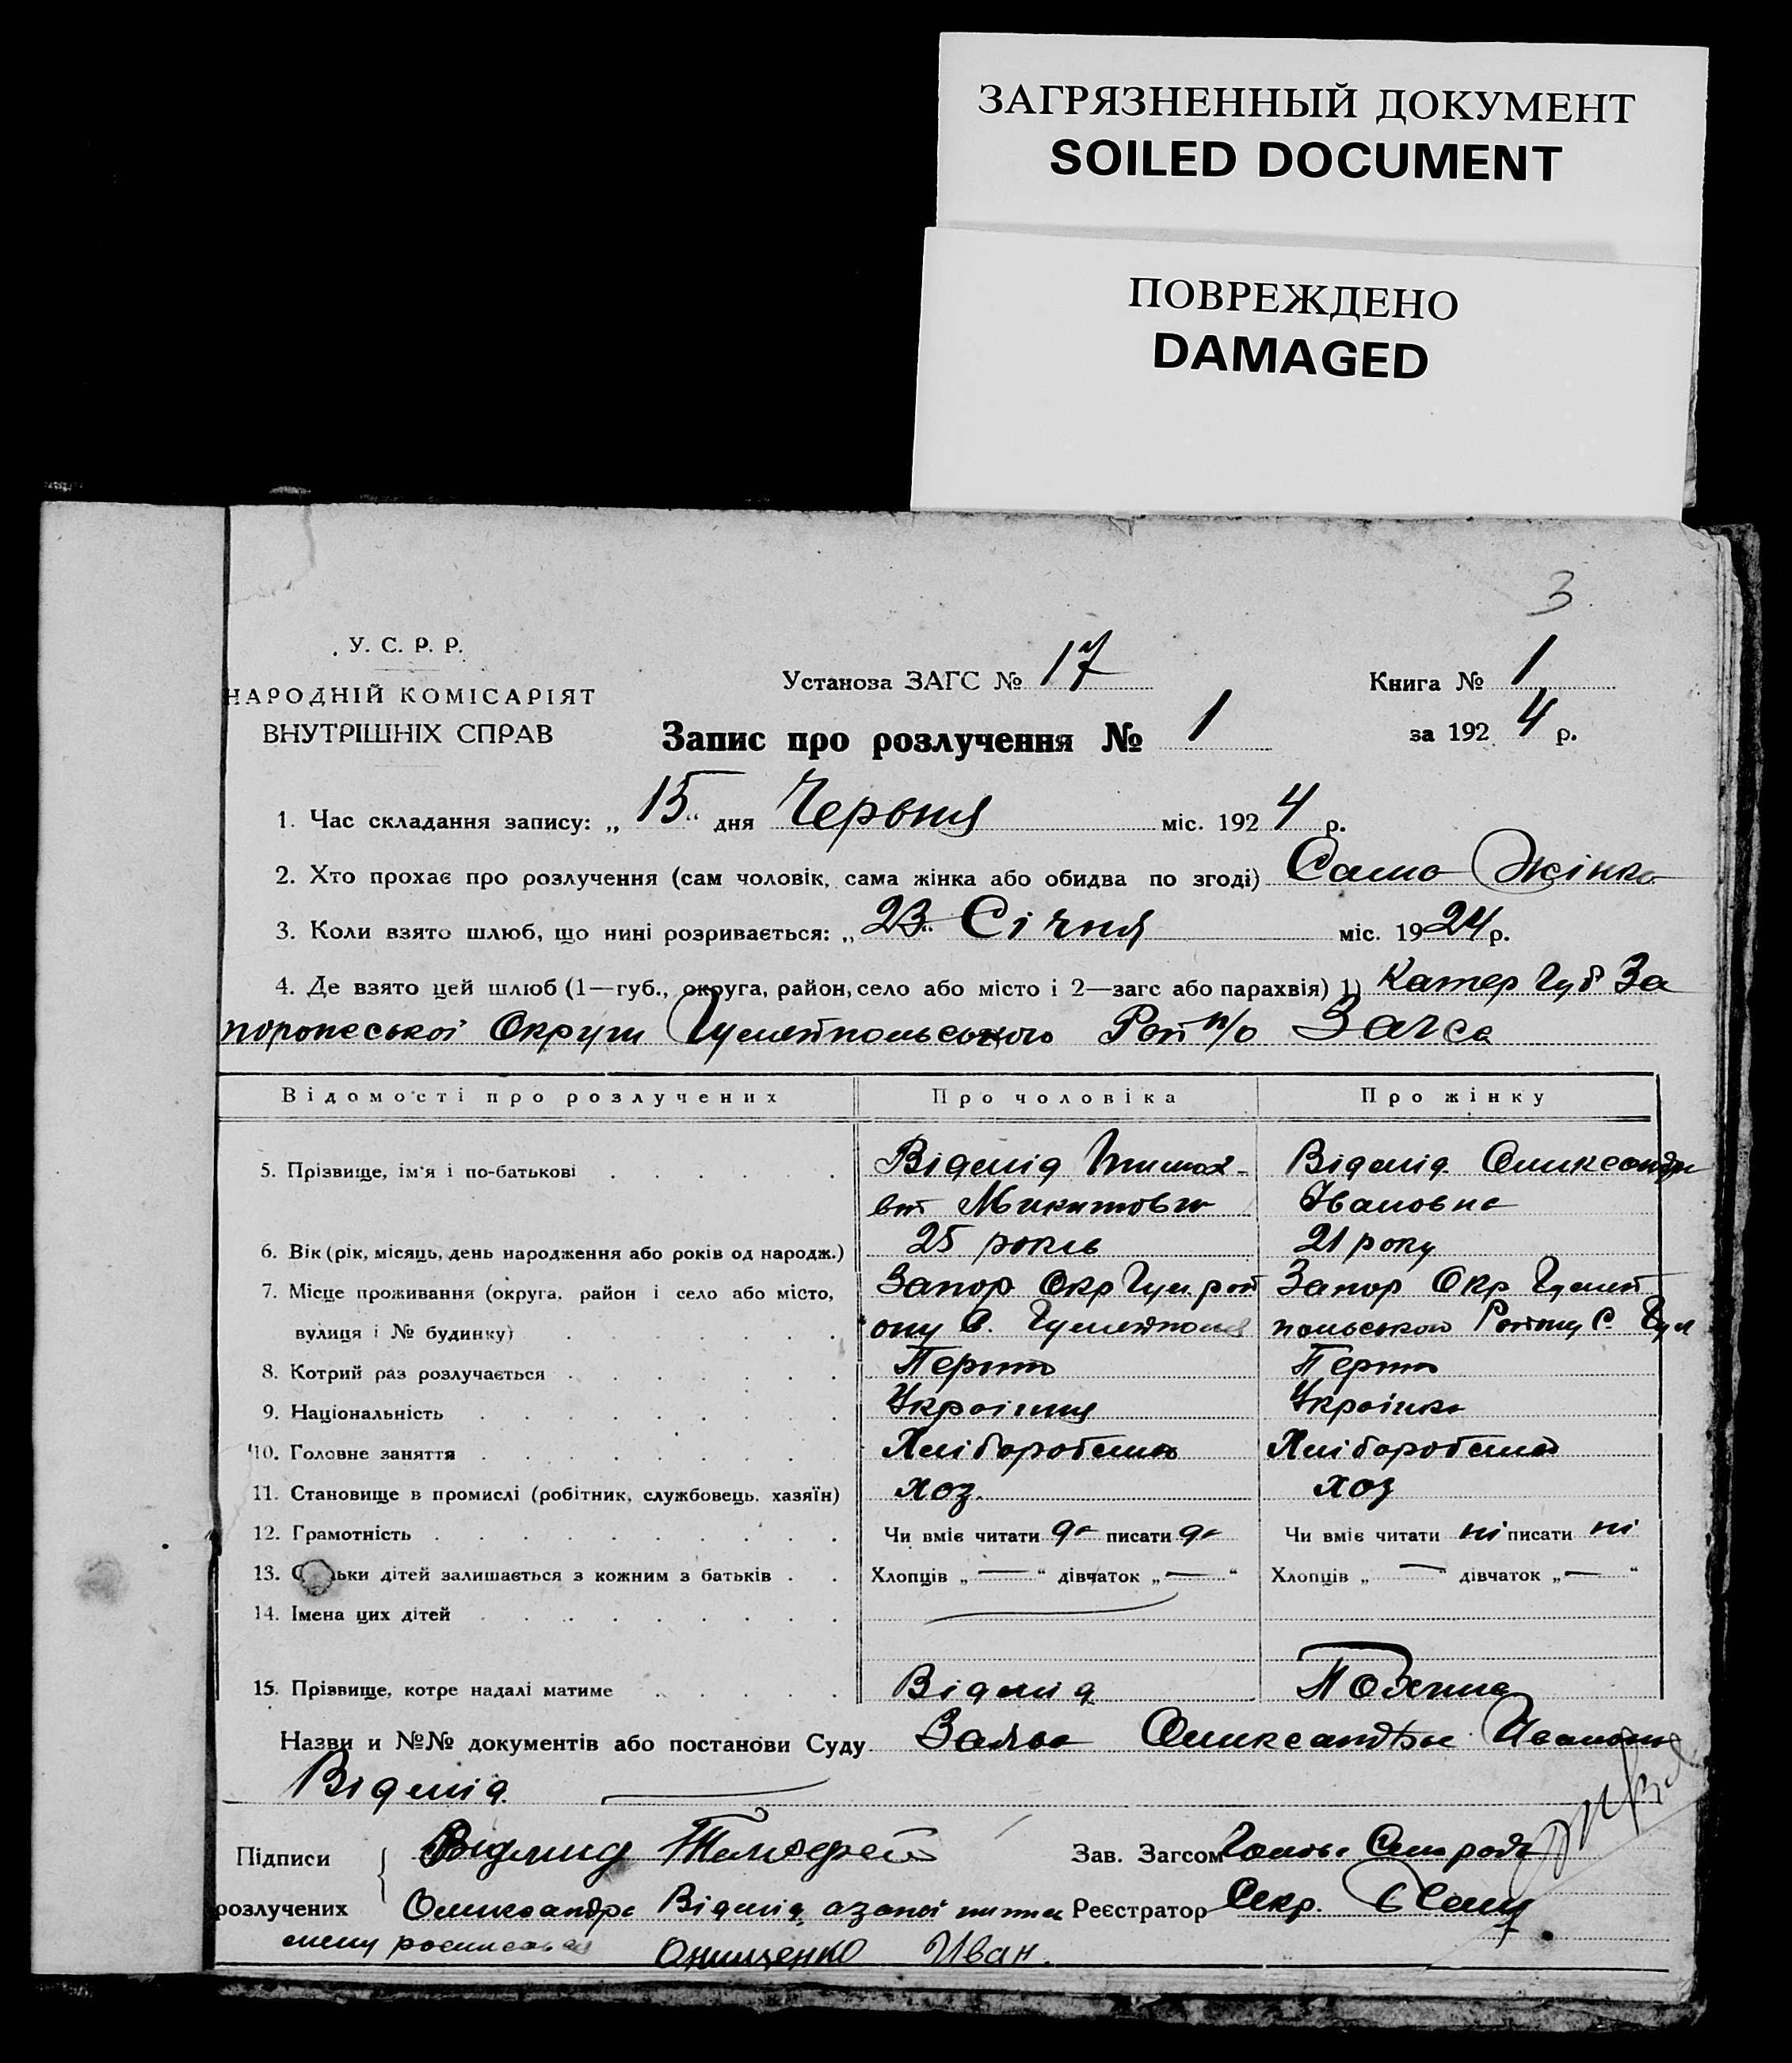 ЗАГРЯЗНЕННЫЙ ДОКУМЕНТ
SOILED DOCUMENT
ПОВРЕЖДЕНО
DAMAGED
3
У. С. Р. Р.
НАРОДНІЙ КОМІСАРІЯТ
ВНУТРІШНІХ СПРАВ
Установа ЗАГС № 17
Книга № 1
Запис про розлучення № 1
за 192 4 р.
1. Час складання запису: „ 15 “ дня Червня міс. 192 4 р.
2. Хто прохає про розлучення (сам чоловік, сама жінка або обидва по згоді) Сама Жінка
3. Коли взято шлюб, що нині розривається: „ 23 “ Січня міс. 19 24 р.
4. Де взято цей шлюб (1—губ., округа, район, село або місто і 2—загс або парахвія) 1) Катер Губ За
порожської Округи Гуляйпольського Рай п/о Загса
Відомості про розлучених Про чоловіка Про жінку
5. Прізвище, ім'я і по-батькові Відмід Відмід Олександра
Микитович Івановна
6. Вік (рік, місяць, день народження або років од народж.) 25 років 21 року
7. Місце проживання (округа, район і село або місто, Запор Окр Гул рай Запор Окр Гуляй
вулиця і № будинку) ону С. Гуляйполя польського Району С. Гул
8. Котрий раз розлучається
9. Національність Українец Українка
10. Головне заняття Хліборобство Хліборобство
11. Становище в промислі (робітник, службовець, хазяїн) хоз. хоз
12. Грамотність Чи вміє читати да писати да Чи вміє читати ні писати ні
13. Скільки дітей залишається з кожним з батьків Хлопців „ — “ дівчаток „ — “ Хлопців „ — “ дівчаток „ — “
14. Імена цих дітей
15. Прізвище, котре надалі матиме Відмід
Назви и №№ документів або постанови Суду Заява Олександры Ивановны
Відмід
Підписи Відмид Тимофей Зав. Загсом
розлучених Олександра Відмід Реєстратор Секр.
Онищенко Иван.